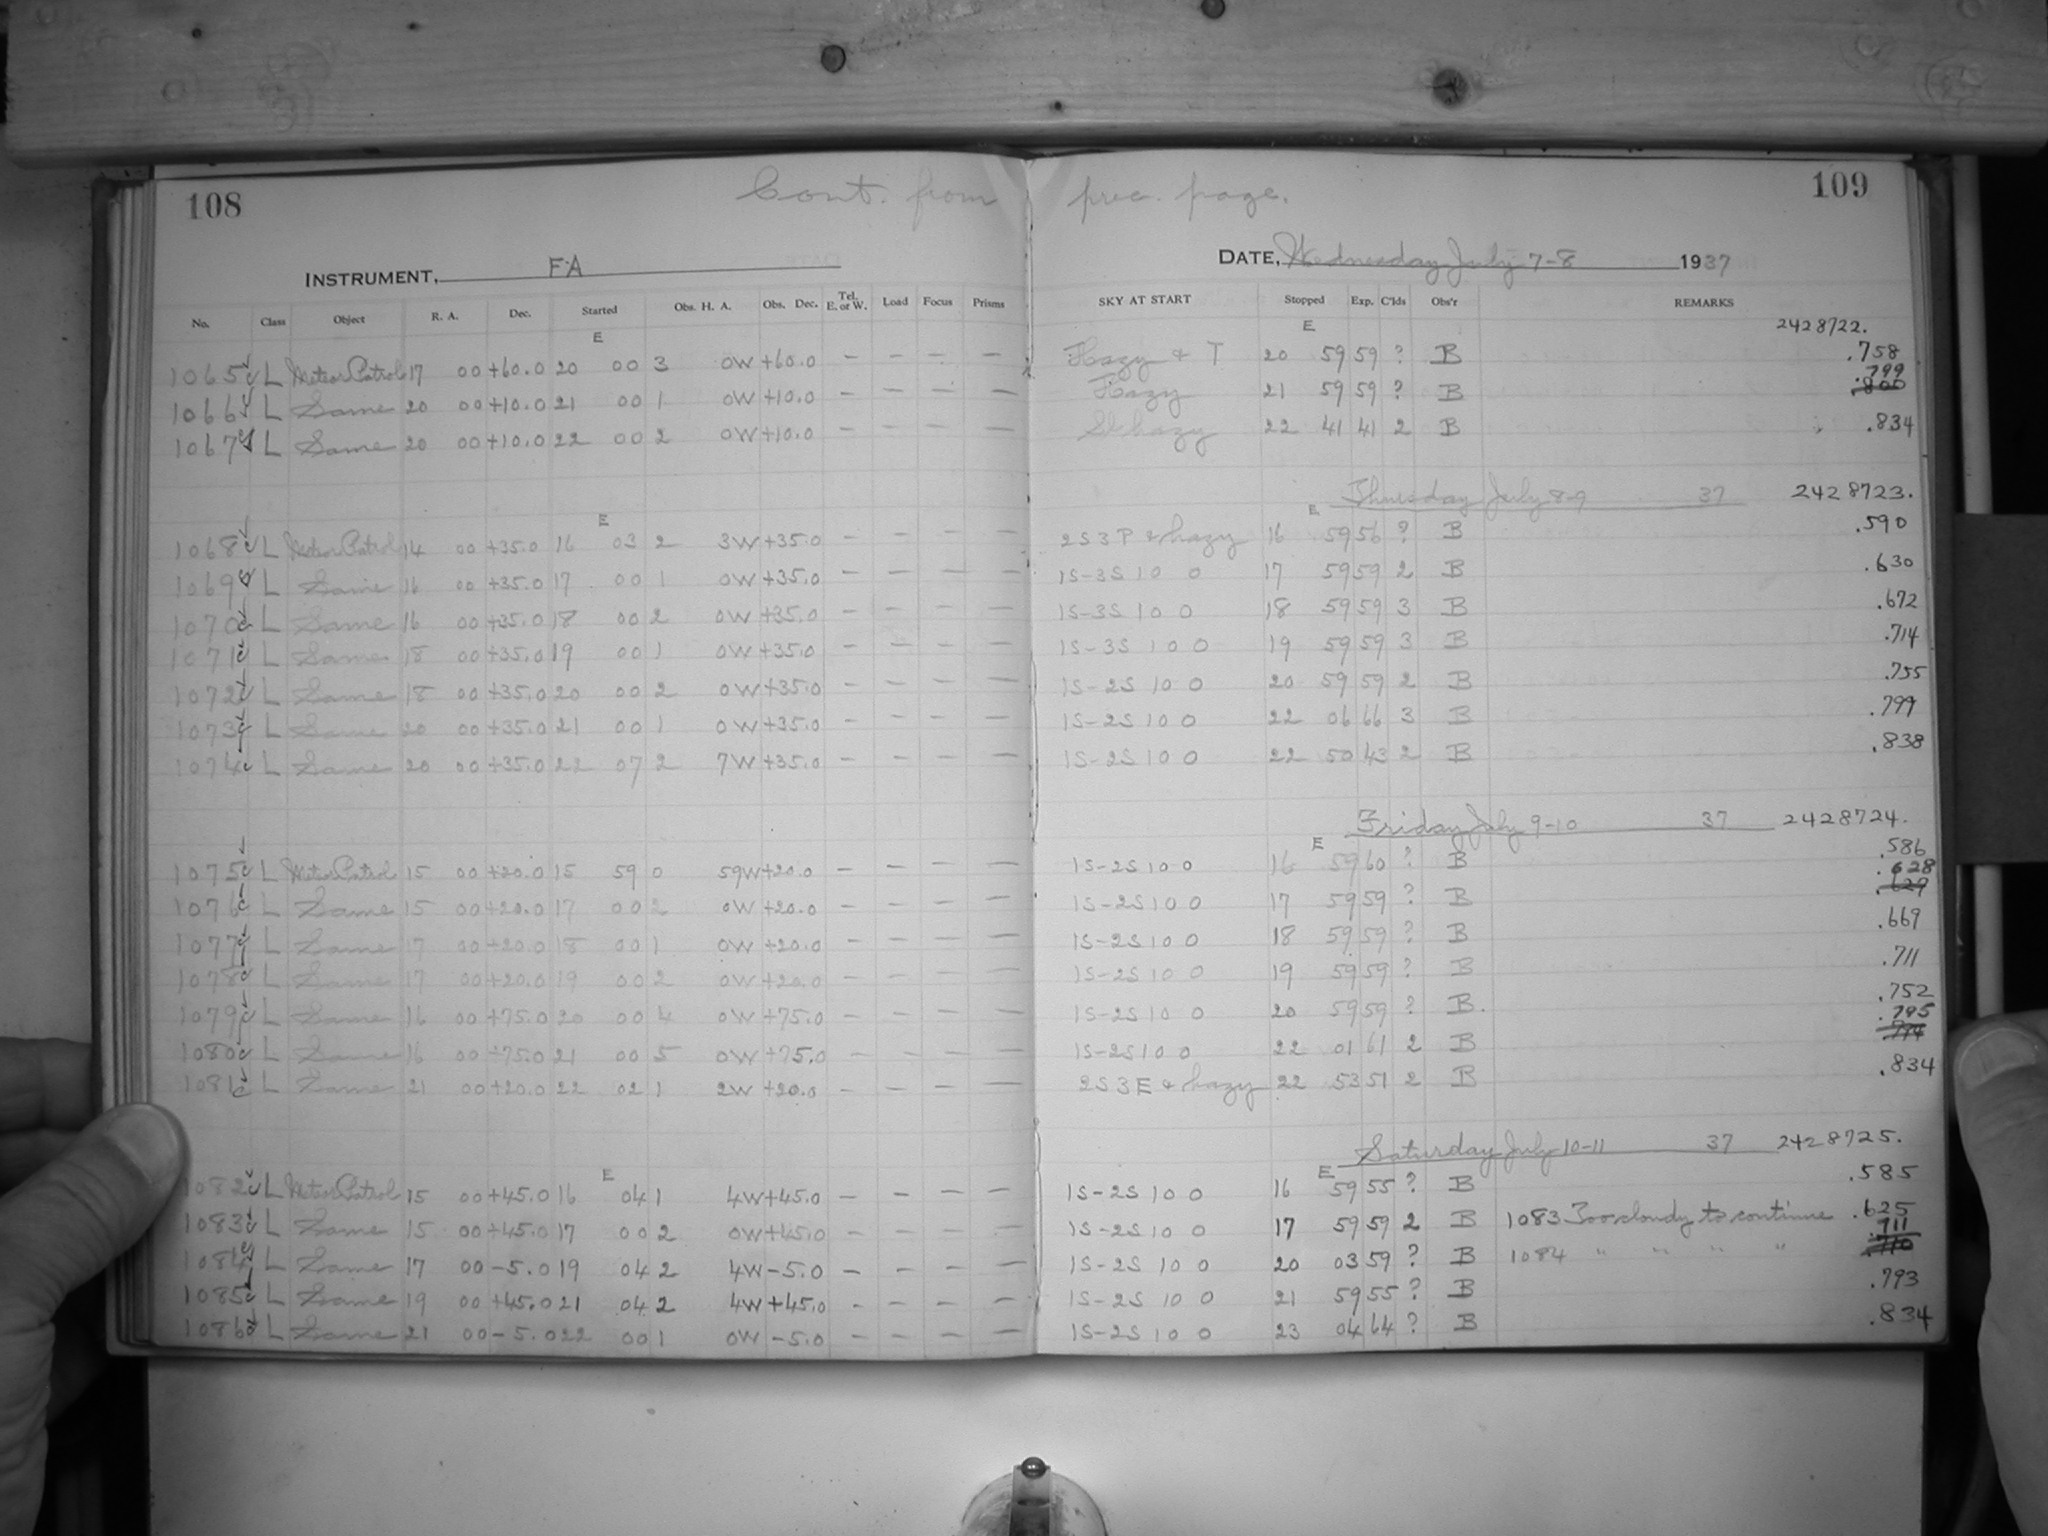 108 Cont. from prec. page. 109
INSTRUMENT, FA DATE, Wednesday July 7-8 1937
No. Class Object R. A. Dec. Started Obs. H. A. Obs. Dec. Tel. E. or W. Load Focus Prisms SKY AT START Stopped Exp. C'lds Obs'r REMARKS
E E 2428722.
1065 L Meteor Patrol 17 00 +60.0 20 00 3 0W +60.0 - - - - Hazy & T 20 59 59 ? B .758
1066 L Same 20 00 +10.0 21 00 1 0W +10.0 - - - - Hazy 21 59 59 ? B .799 .800
1067 L Same 20 00 +10.0 22 00 2 0W +10.0 - - - - Sl hazy 22 41 41 2 B .834
Thursday July 8-9 37 2428723.
E E
1068 L Meteor Patrol 14 00 +35.0 16 03 2 3W +35.0 - - - - 2S3P & hazy 16 59 56 ? B .590
1069 L Same 16 00 +35.0 17 00 1 0W +35.0 - - - - 1S-3S 10 0 17 59 59 2 B .630
1070 L Same 16 00 +35.0 18 00 2 0W +35.0 - - - - 1S-3S 10 0 18 59 59 3 B .672
1071 L Same 18 00 +35.0 19 00 1 0W +35.0 - - - - 1S-3S 10 0 19 59 59 3 B .714
1072 L Same 18 00 +35.0 20 00 2 0W +35.0 - - - - 1S-2S 10 0 20 59 59 2 B .755
1073 L Same 20 00 +35.0 21 00 1 0W +35.0 - - - - 1S-2S 10 0 22 06 66 3 B .799
1074 L Same 20 00 +35.0 22 07 2 7W +35.0 - - - - 1S-2S 10 0 22 50 43 2 B .838
Friday July 9-10 37 2428724.
E
1075 L Meteor Patrol 15 00 +20.0 15 59 0 59W +20.0 - - - - 1S-2S 10 0 16 59 60 ? B .586
1076 L Same 15 00 +20.0 17 00 2 0W +20.0 - - - - 1S-2S 10 0 17 59 59 ? B .628 .629
1077 L Same 17 00 +20.0 18 00 1 0W +20.0 - - - - 1S-2S 10 0 18 59 59 ? B .669
1078 L Same 17 00 +20.0 19 00 2 0W +20.0 - - - - 1S-2S 10 0 19 59 59 ? B .711
1079 L Same 16 00 +75.0 20 00 4 0W +75.0 - - - - 1S-2S 10 0 20 59 59 ? B. .752
1080 L Same 16 00 +75.0 21 00 5 0W +75.0 - - - - 1S-2S 10 0 22 01 61 2 B .795
1081 L Same 21 00 +20.0 22 02 1 2W +20.0 - - - - 2S3E & hazy 22 53 51 2 B .834
Saturday July 10-11 37 2428725.
E E
1082 L Meteor Patrol 15 00 +45.0 16 04 1 4W +45.0 - - - - 1S-2S 10 0 16 59 55 ? B .585
1083 L Same 15 00 +45.0 17 00 2 0W +45.0 - - - - 1S-2S 10 0 17 59 59 2 B 1083 Too cloudy to continue .625
1084 L Same 17 00 -5.0 19 04 2 4W -5.0 - - - - 1S-2S 10 0 20 03 59 ? B 1084 " " " " .711 .710
1085 L Same 19 00 +45.0 21 04 2 4W +45.0 - - - - 1S-2S 10 0 21 59 55 ? B .793
1086 L Same 21 00 -5.0 22 00 1 0W -5.0 - - - - 1S-2S 10 0 23 04 64 ? B .834